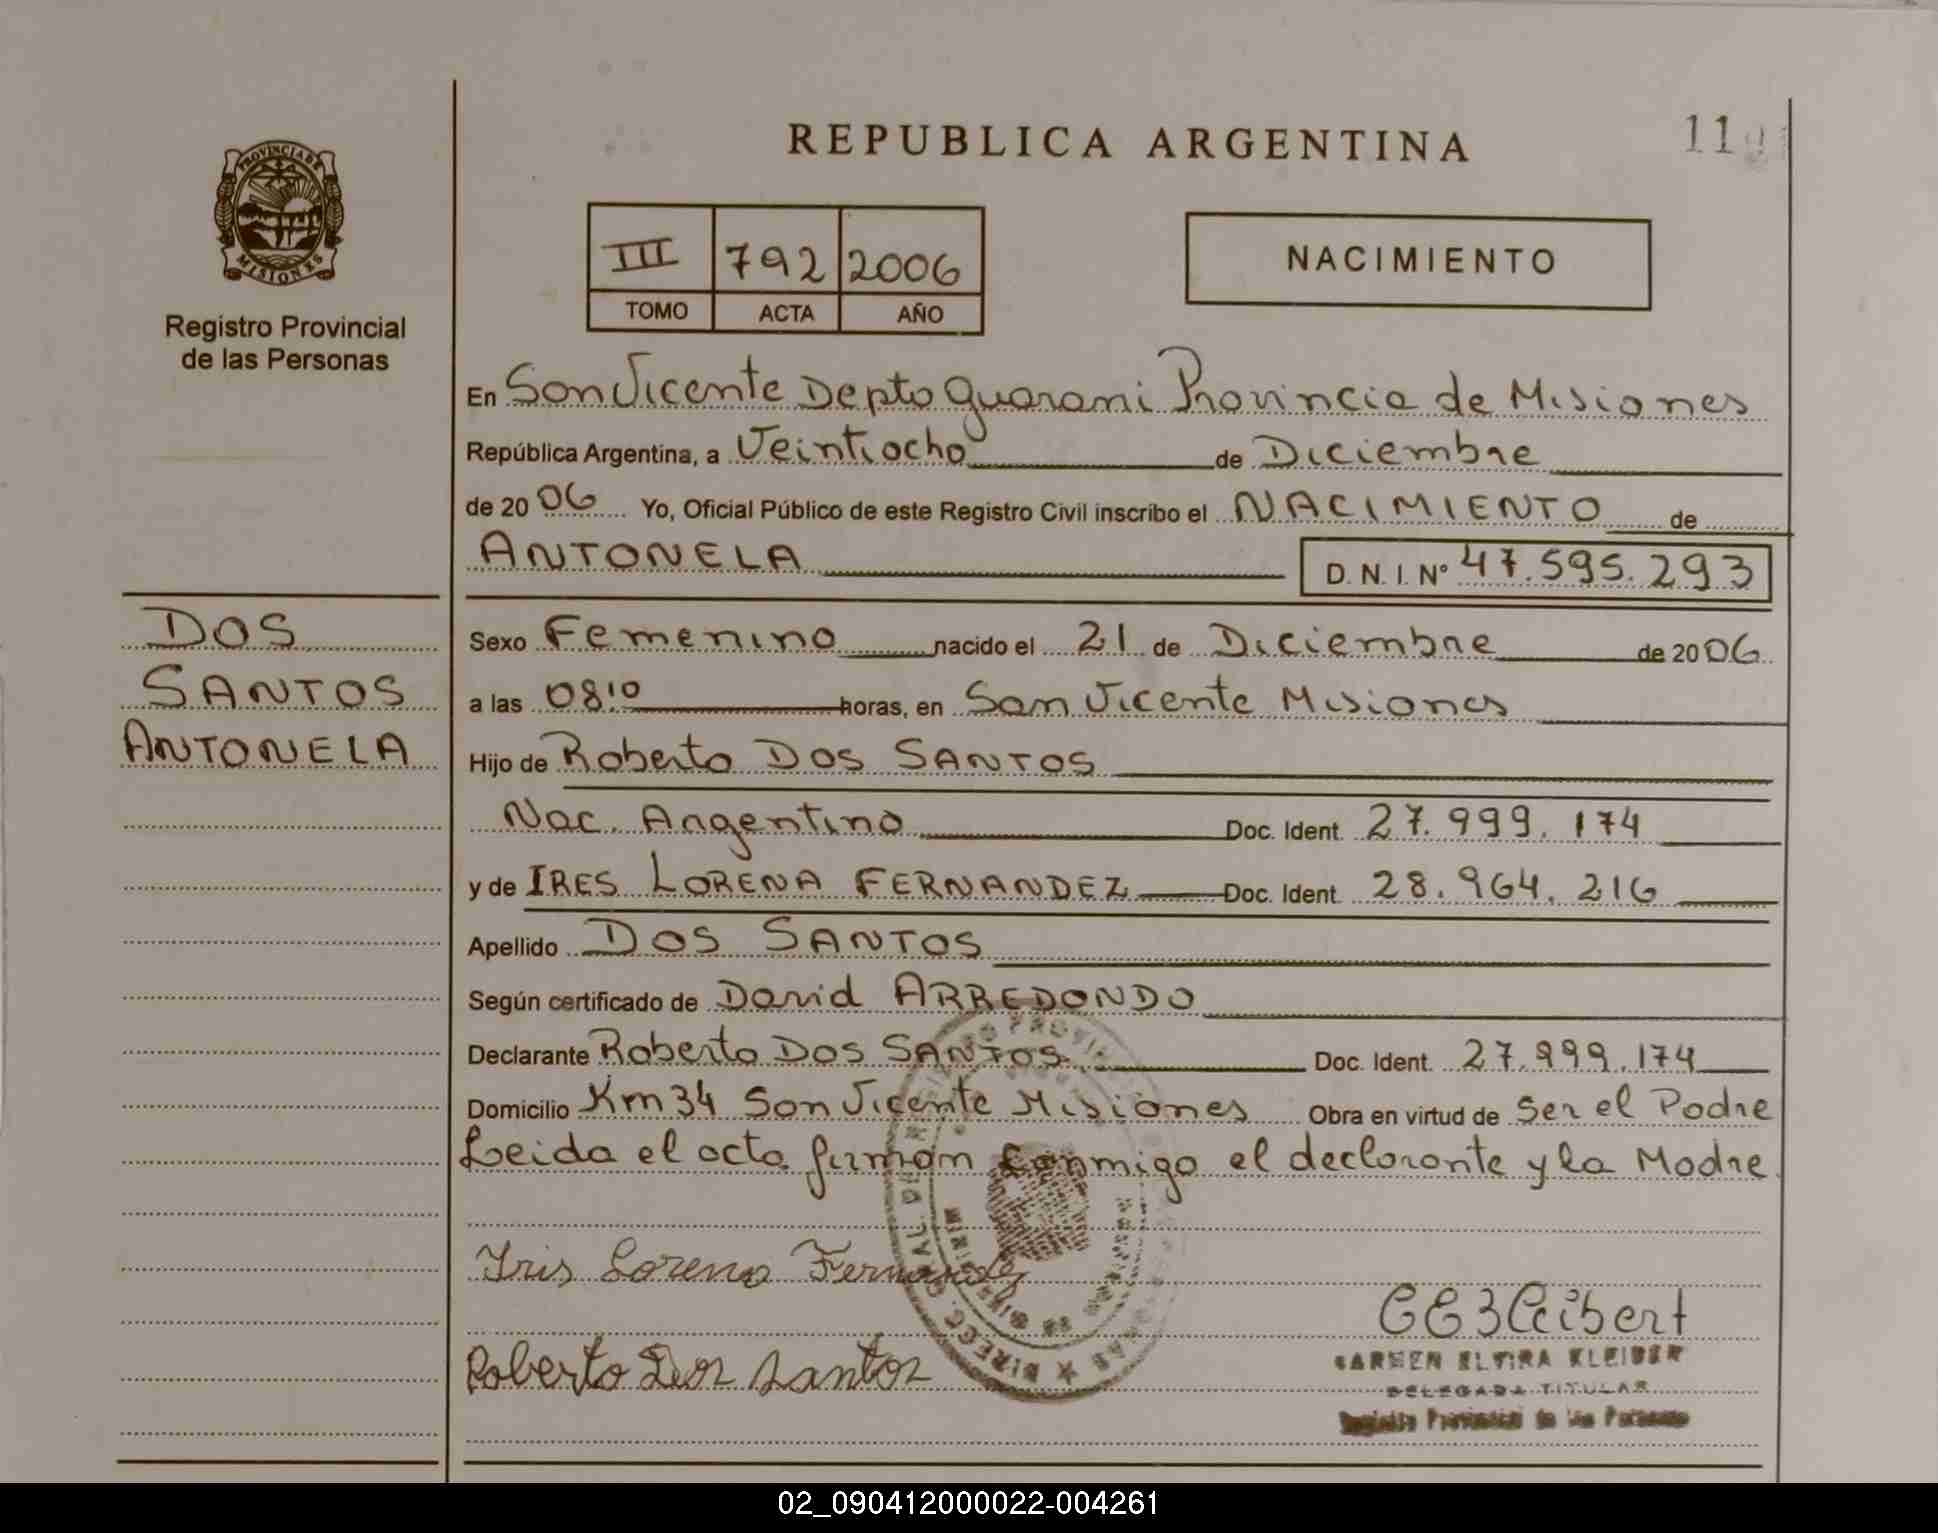 REPUBLICA ARGENTINA
11
PROVINCIA DE
MISIONES
Registro Provincial
de las Personas
III 792 2006
TOMO ACTA AÑO
NACIMIENTO
En San Vicente Depto Guarani Provincia de Misiones
República Argentina, a Veintiocho de Diciembre
de 2006 Yo, Oficial Público de este Registro Civil inscribo el NACIMIENTO de
ANTONELA D.N.I.Nº 47.595.293
DOS
SANTOS
ANTONELA
Sexo Femenino nacido el 21 de Diciembre de 2006
a las 08:10 horas, en San Vicente Misiones
Hijo de Roberto DOS SANTOS
Nac. Argentino Doc. Ident. 27.999.174
y de IRES LORENA FERNANDEZ Doc. Ident. 28.964.216
Apellido DOS SANTOS
Según certificado de David ARREDONDO
Declarante Roberto DOS SANTOS Doc. Ident. 27.999.174
Domicilio Km 34 San Vicente Misiones Obra en virtud de Ser el Padre
Leida el acta firman conmigo el declarante y la Madre
Iris Lorena Fernandez
Roberto Dos Santos
CARMEN ELVIRA KLEIBER
DELEGADA TITULAR
Registro Provincial de las Personas
02_090412000022-004261